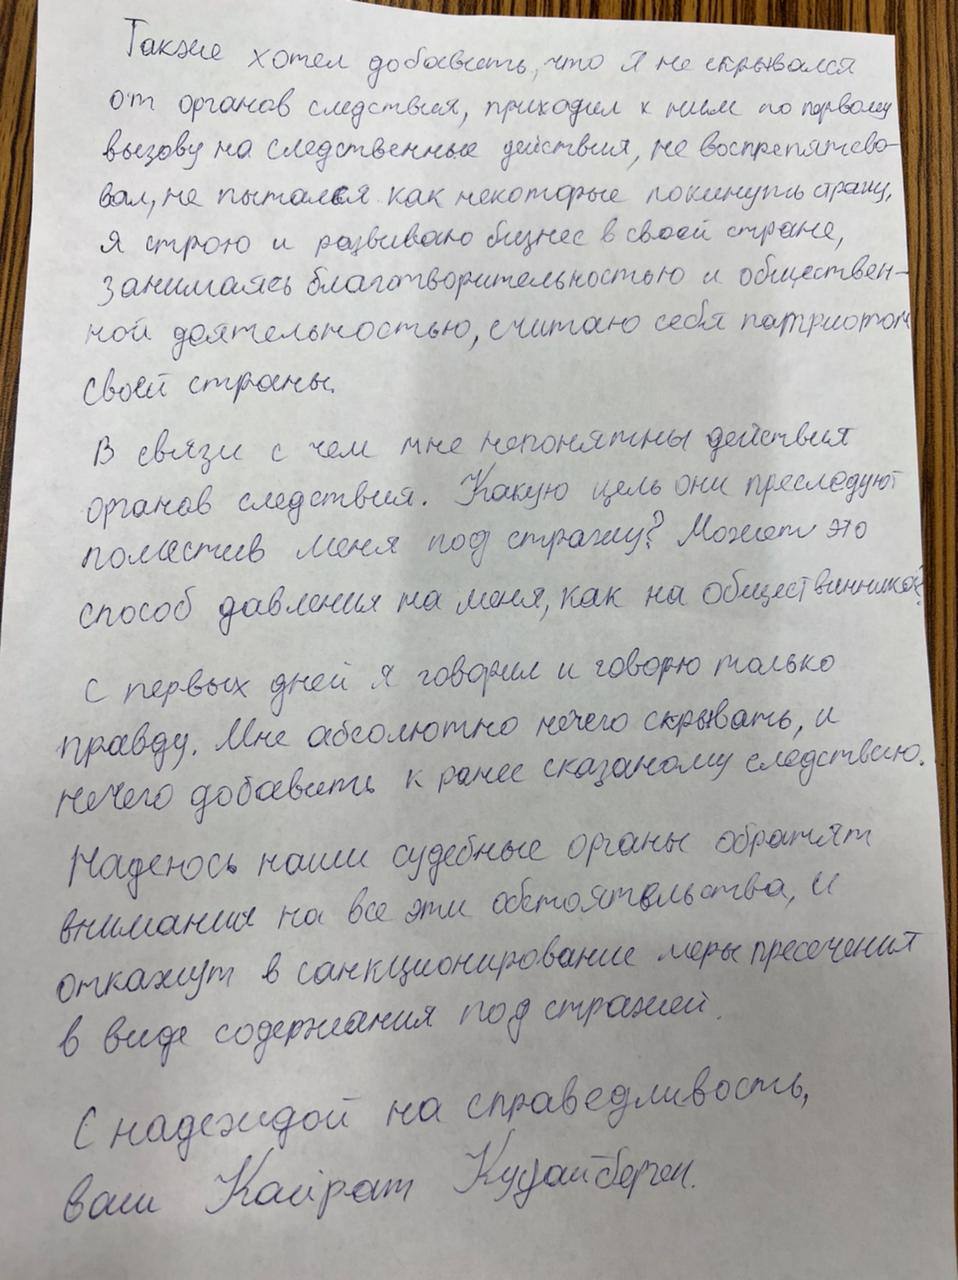 Также хотел добавить, что я не скрывался
от органов следствия, приходил к ним по первому
вызову на следственные действия, не воспрепятство-
вал, не пытался как некоторые покинуть страну,
я строю и развиваю бизнес в своей стране,
занимаясь благотворительностью и обществен-
ной деятельностью, считаю себя патриотом
своей страны.
В связи с чем мне непонятны действия
органов следствия. Какую цель они преследуют
поместив меня под стражу? Может это
способ давления на меня, как на общественника?
С первых дней я говорил и говорю только
правду. Мне абсолютно нечего скрывать, и
нечего добавить к ранее сказаному следствию.
Надеюсь наши судебные органы обратят
внимания на все эти обстоятельства, и
откажут в санкционирование меры пресечения
в виде содержания под стражей.
С надеждой на справедливость,
ваш Кайрат Кудайберген.